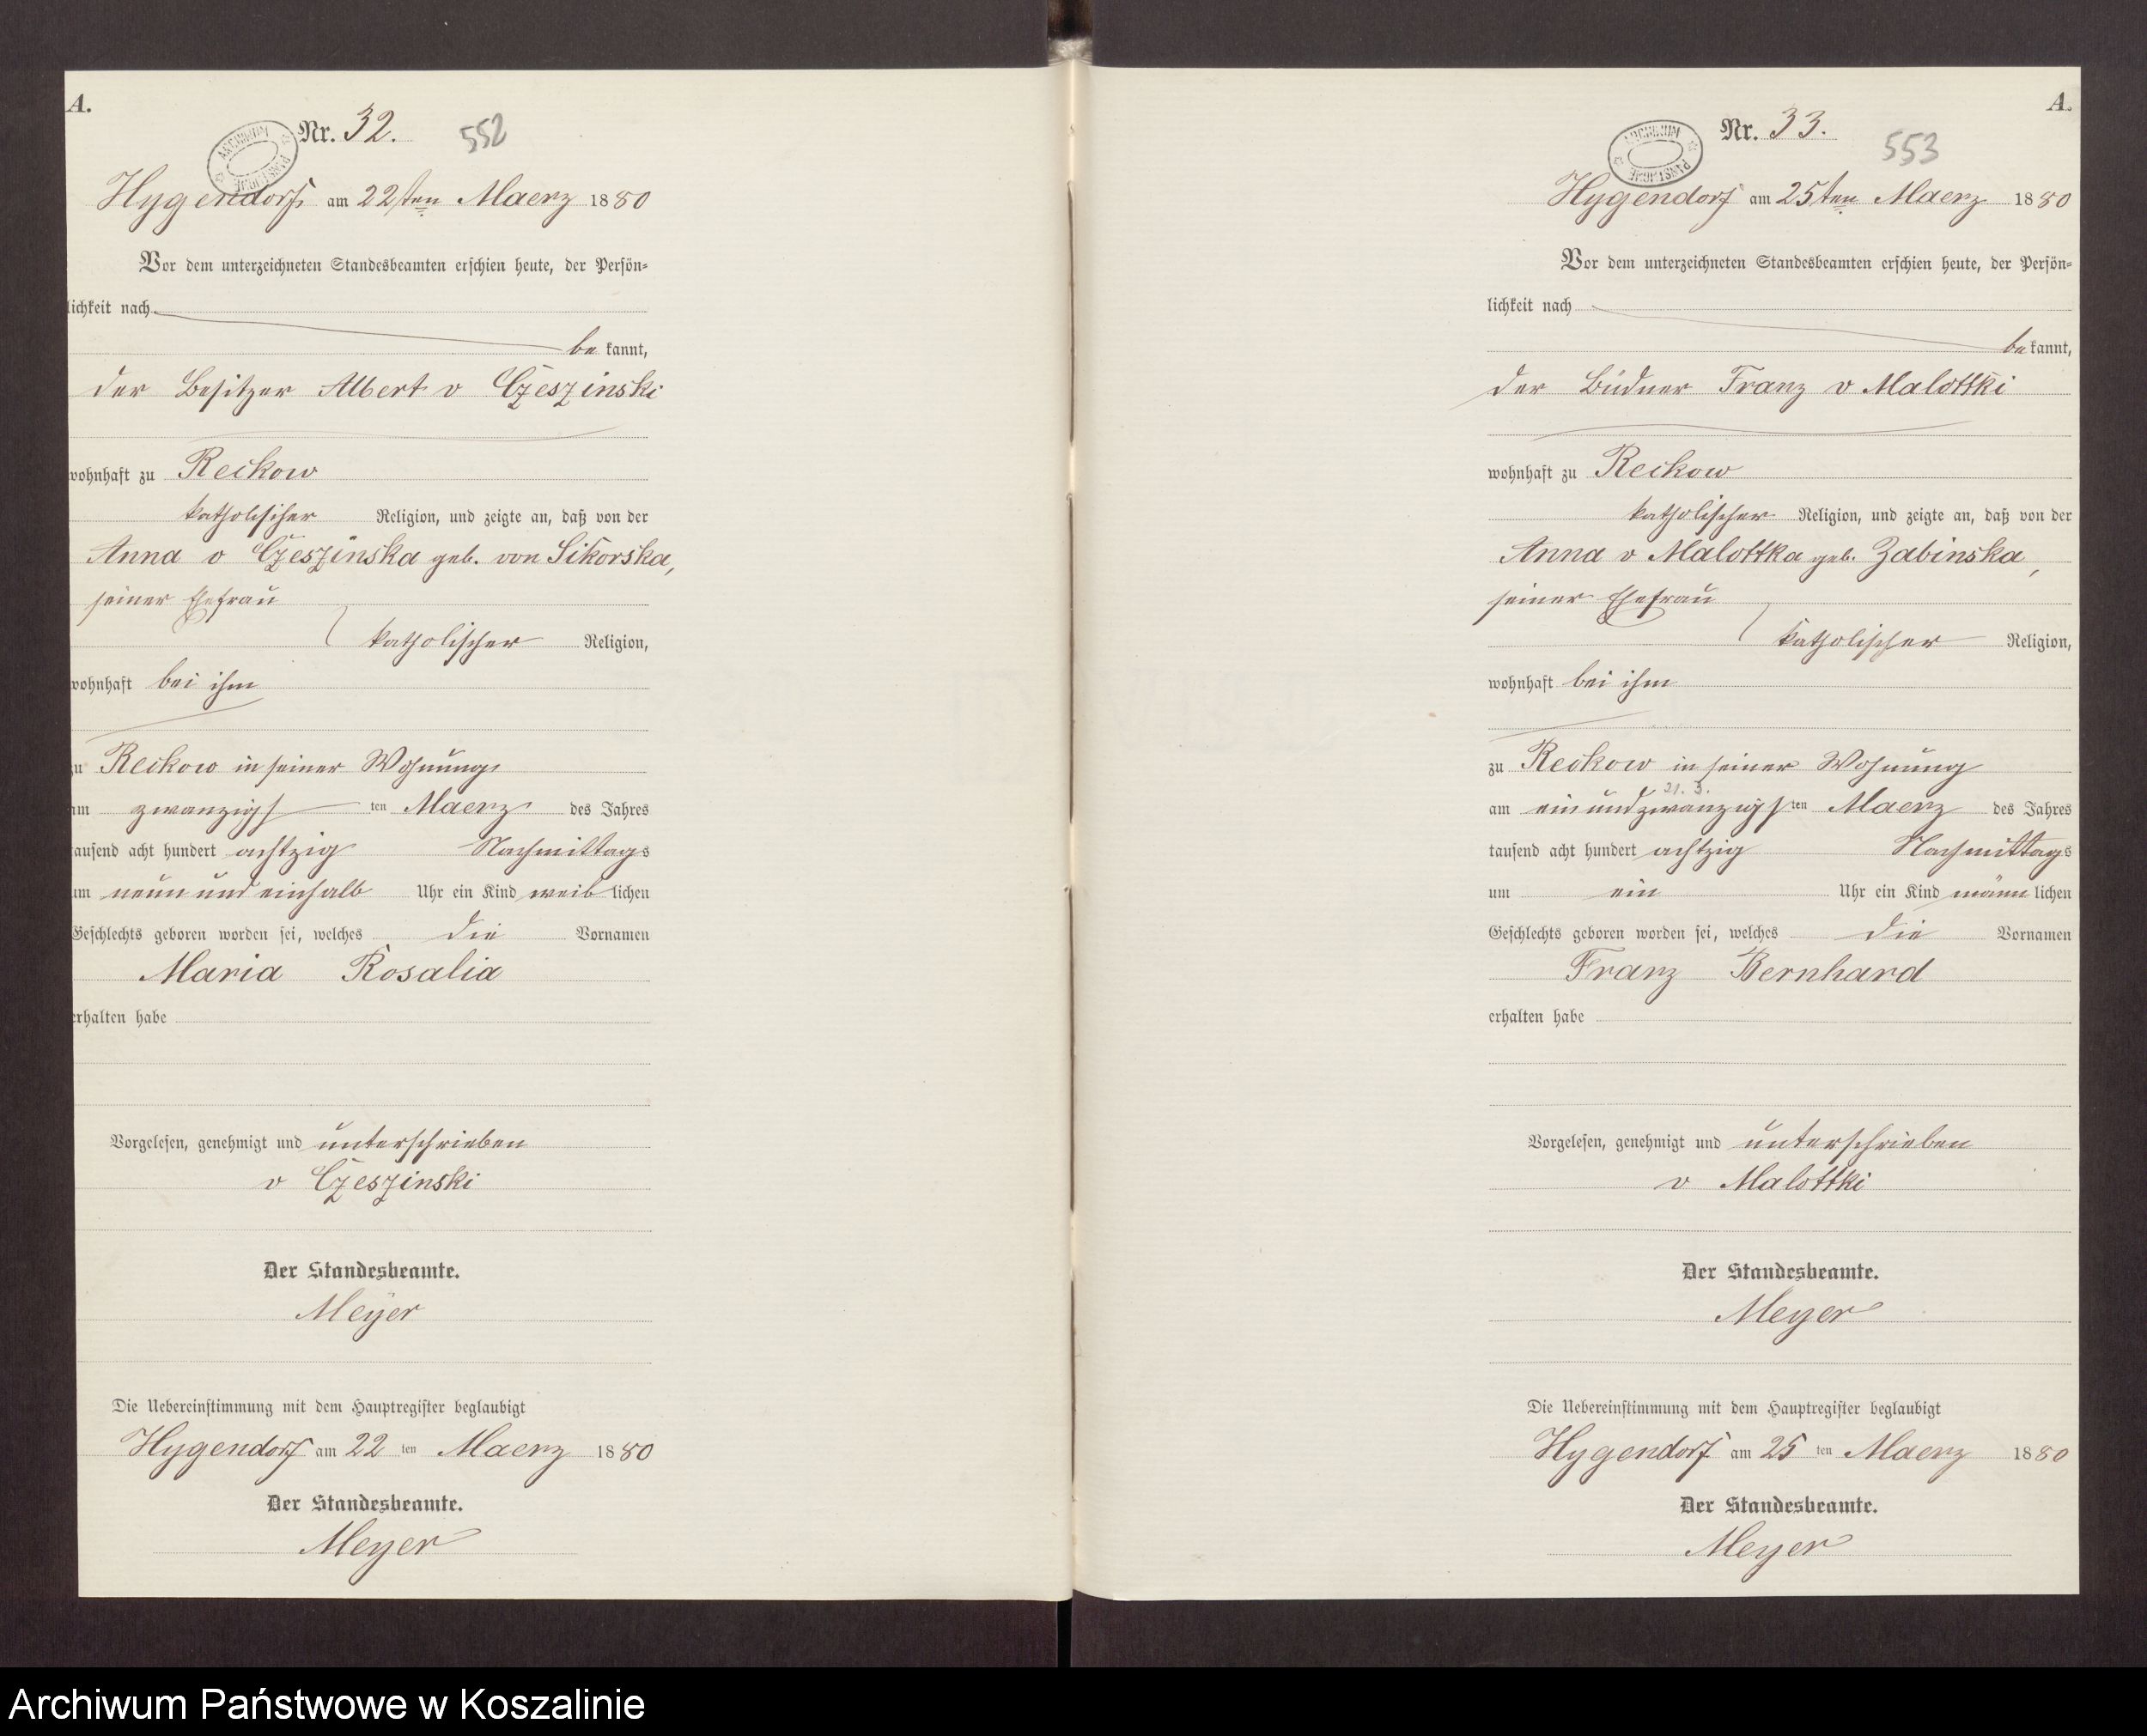 A.
Nr. 32.
552
ARCHIWUM PAŃSTWOWE
Hygendorf am 22sten Maerz 1880
Vor dem unterzeichneten Standesbeamten erschien heute, der Persön-
lichkeit nach
be kannt,
der Besitzer Albert v Czeszinski
wohnhaft zu Reckow
katholischer Religion, und zeigte an, daß von der
Anna v Czeszinska geb. von Sikorska,
seiner Ehefrau
katholischer Religion,
wohnhaft bei ihm
zu Reckow in seiner Wohnung
am zwanzigs ten Maerz des Jahres
tausend acht hundert achtzig Nachmittags
um neun und einhalb Uhr ein Kind weib lichen
Geschlechts geboren worden sei, welches die Vornamen
Maria Rosalia
erhalten habe
Vorgelesen, genehmigt und unterschrieben
v Czeszinski
Der Standesbeamte.
Meyer
Die Uebereinstimmung mit dem Hauptregister beglaubigt
Hygendorf am 22 ten Maerz 1880
Der Standesbeamte.
Meyer
A.
Nr. 33.
553
ARCHIWUM PAŃSTWOWE
Hygendorf am 25ten Maerz 1880
Vor dem unterzeichneten Standesbeamten erschien heute, der Persön-
lichkeit nach
be kannt,
der Büdner Franz v Malottki
wohnhaft zu Reckow
katholischer Religion, und zeigte an, daß von der
Anna v Malottka geb. Zabinska,
seiner Ehefrau
katholischer Religion,
wohnhaft bei ihm
zu Reckow in seiner Wohnung
21. 3.
am einundzwanzigs ten Maerz des Jahres
tausend acht hundert achtzig Nachmittags
um ein Uhr ein Kind männ lichen
Geschlechts geboren worden sei, welches die Vornamen
Franz Bernhard
erhalten habe
Vorgelesen, genehmigt und unterschrieben
v Malottki
Der Standesbeamte.
Meyer
Die Uebereinstimmung mit dem Hauptregister beglaubigt
Hygendorf am 25 ten Maerz 1880
Der Standesbeamte.
Meyer
Archiwum Państwowe w Koszalinie